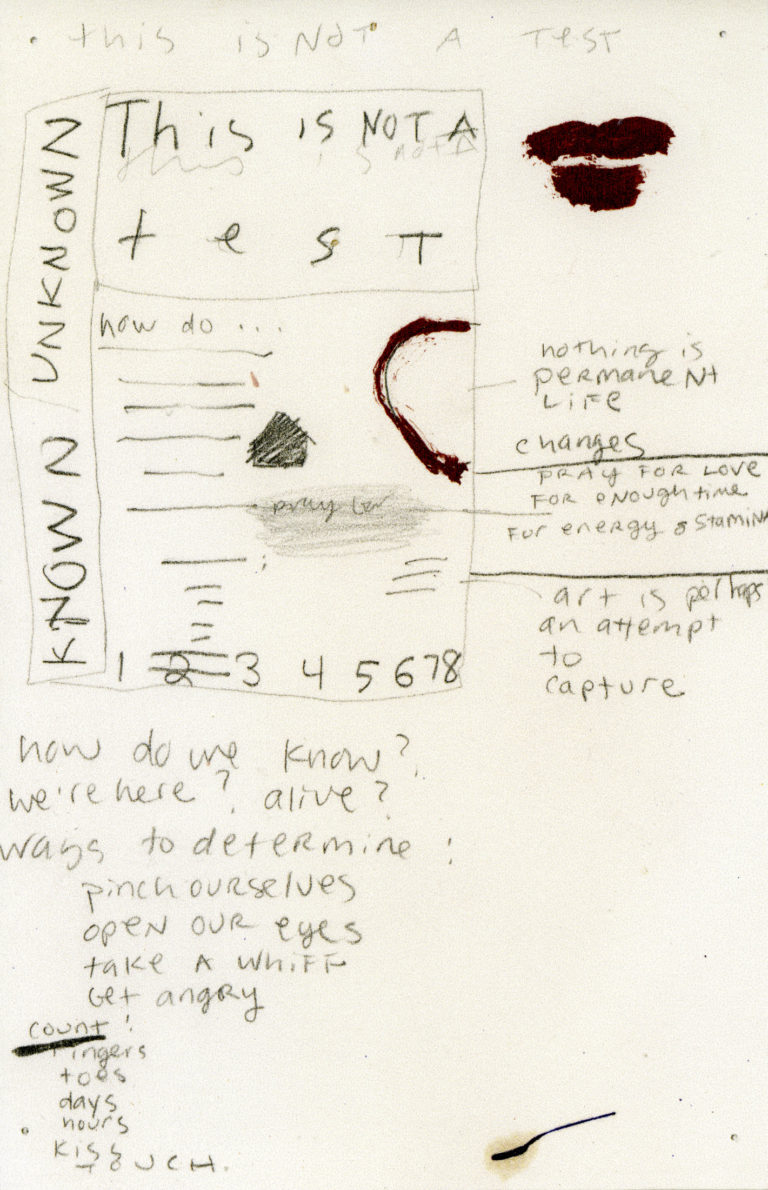 this is NOT A TEST
UNKNOWN
KNOWN
This is NOT A
this is not A
t e s T
how do ...
nothing is
permaneNt
LiFe
changes
PRAY FOR LOVE
FOR enough time
For energy & Stamin
pray
art is perhaps
an attempt
to
capture
1 2 3 4 5 6 7 8
how do we know?
we're here? alive?
ways to determine:
pinch ourselves
open our eyes
take A whiff
Get angry
count:
fingers
toes
days
hours
kiss
TOUCH.